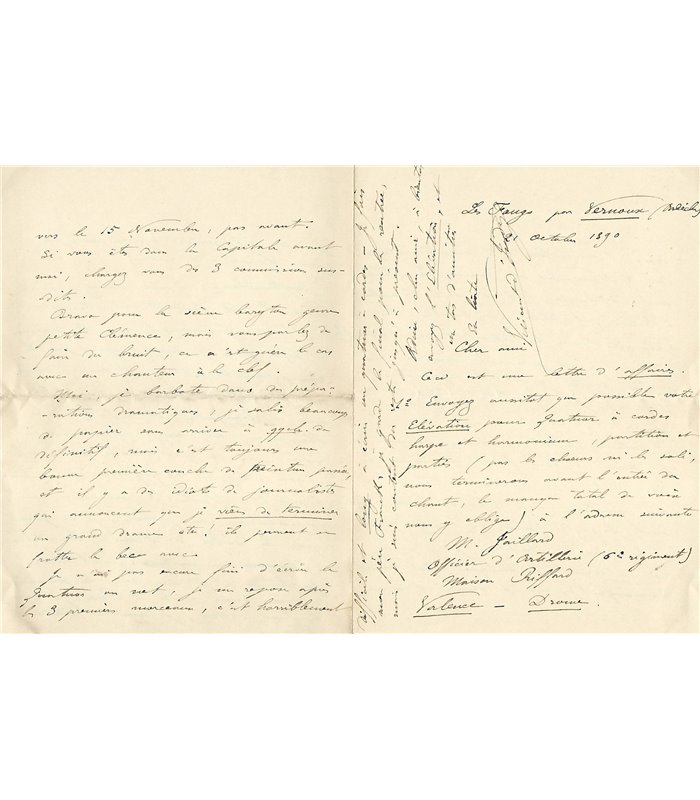 Les Faugs par Vernoux (Ardèche)
21 Octobre 1890
Cher ami
Ceci est une lettre d'affaires.
Envoyez aussitot que possible votre
Elévation pour Quatuor à cordes
harpe et harmonium, partition et
parties (pas les chœurs ni le solo,
nous terminerons avant l'entrée du
chant, le manque total de voix
nous y oblige) à l'adresse suivante
M. Jaillard
Officier d'Artillerie (6e régiment)
Maison Riffard
Valence - Drome.
vers le 15 Novembre, pas avant.
Si vous êtes dans la Capitale avant
moi, chargez vous des 3 commissions sus-
dites.
Bravo pour la scène baryton genre
petite Clémence, mais vous parlez de
faire du bruit, ce n'est guère le cas
avec un chanteur à la clef.
Moi, je barbote dans des prépa-
rations dramatiques, je salis beaucoup
de papier sans arriver à qqch. de
définitif, mais c'est toujours une
bonne première couche de peinture passée,
et il y a des idiots de journalistes
qui annoncent que je viens de terminer
un grand drame été! ils peuvent se
frotter le bec avec
Je n'ai pas encore fini d'écrire le
Quatuor au net, je me repose après
les 3 premiers morceaux, c'est horriblement
difficile et long à écrire un quatuor à cordes - Je
mon père Franck, je garde le final pour la rentrée,
mais je suis content du reste jusqu'à présent.
Adieu, cher ami, à bientôt
envoyez l'Elévation, et
en tas d'amitiés
de toute
Vincent d'Indy